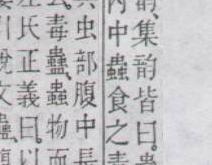 集韵皆曰。
内中蠱食之毒
虫部腹中長
毒蠱。蠱物而
氏正義曰。以
引說文蠱